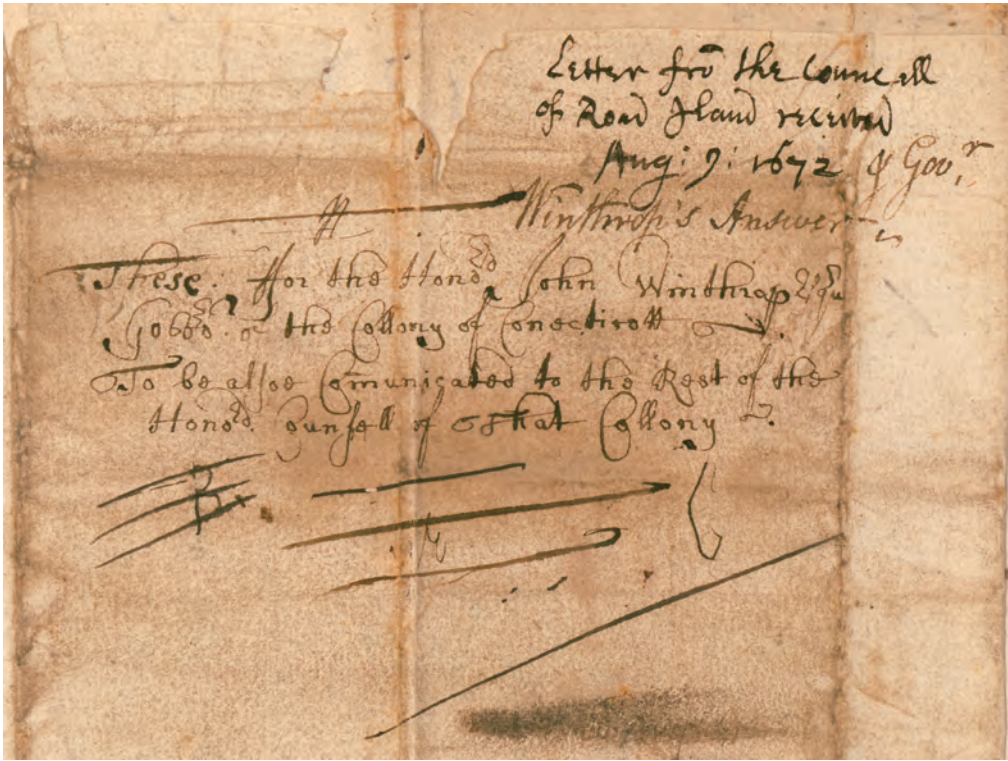 Letter frō the Councell
of Road Iland received
Aug: 9: 1672 & Gov.r
Winthrop's Answer
These: ffor the Honrd John Winthrop Esqu
of the Collony of Conecticott
To be alsoe Com̄unicated to the Rest of the
Honrd. Counsell of that Collony